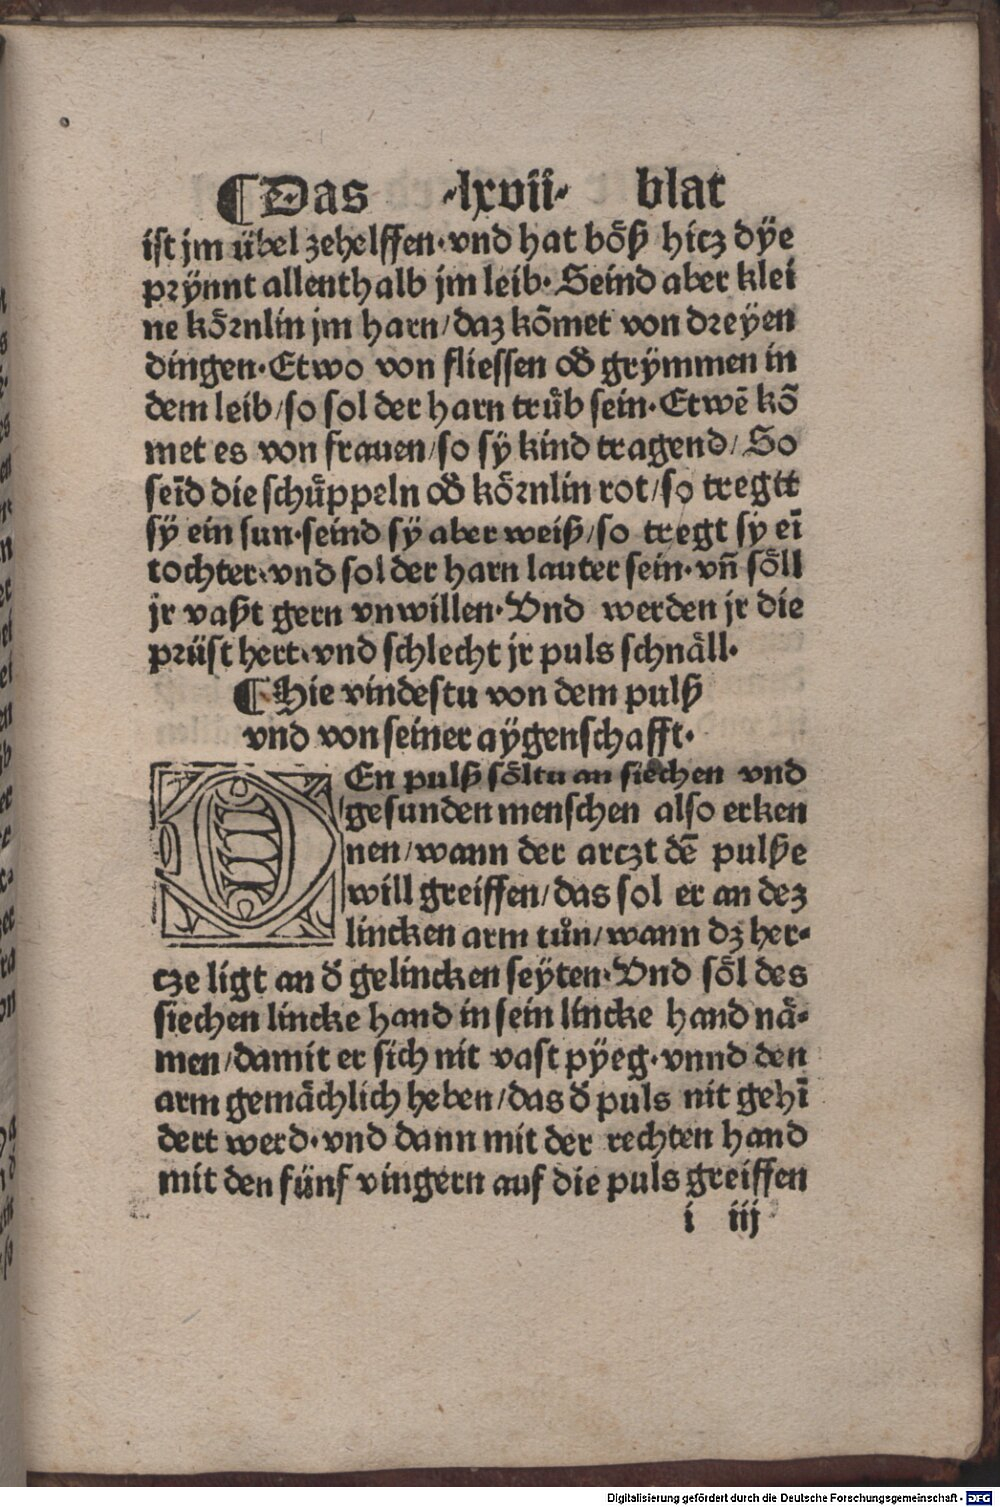 ¶Das ·lxvii· blat
ist jm übel zehelffen·vnd hat bőß hicz dÿe
prÿnnt allenthalb jm leib·Seind aber klei
ne kőrnlin jm harn/daz kõmet von dreÿen
dingen·Etwo von fliessen oď grÿmmen in
dem leib/so sol der harn trůb sein·Etwē kõ
met es von frauen/so sÿ kind tragend/So
seīd die schůppeln oď kőrnlin rot/so tregtt
sÿ ein sun·seind sÿ aber weiß/so tregt sy eī
tochter·vnd sol der harn lauter sein·vñ sőll
jr vaßt gern vnwillen·Vnd werden jr die
prüst hert·vnd schlecht jr puls schnåll·
¶Hie vindestu von dem pulß
vnd von seiner aÿgenschafft·
DEn pulß sőltu an siechen vnd
gesunden menschen also erken
nen/wann der arczt dē pulße
will greiffen/das sol er an dez
lincken arm tůn/wann dz her-
cze ligt an ď gelincken seÿten·Vnd sől des
siechen lincke hand in sein lincke hand nå-
men/damit er sich nit vast pÿeg·vnnd den
arm gemåchlich heben/das ď puls nit gehī
dert werd·vnd dann mit der rechten hand
mit den fünf vingern auf die puls greiffen
i iij
Digitalisierung gefördert durch die Deutsche Forschungsgemeinschaft - DFG